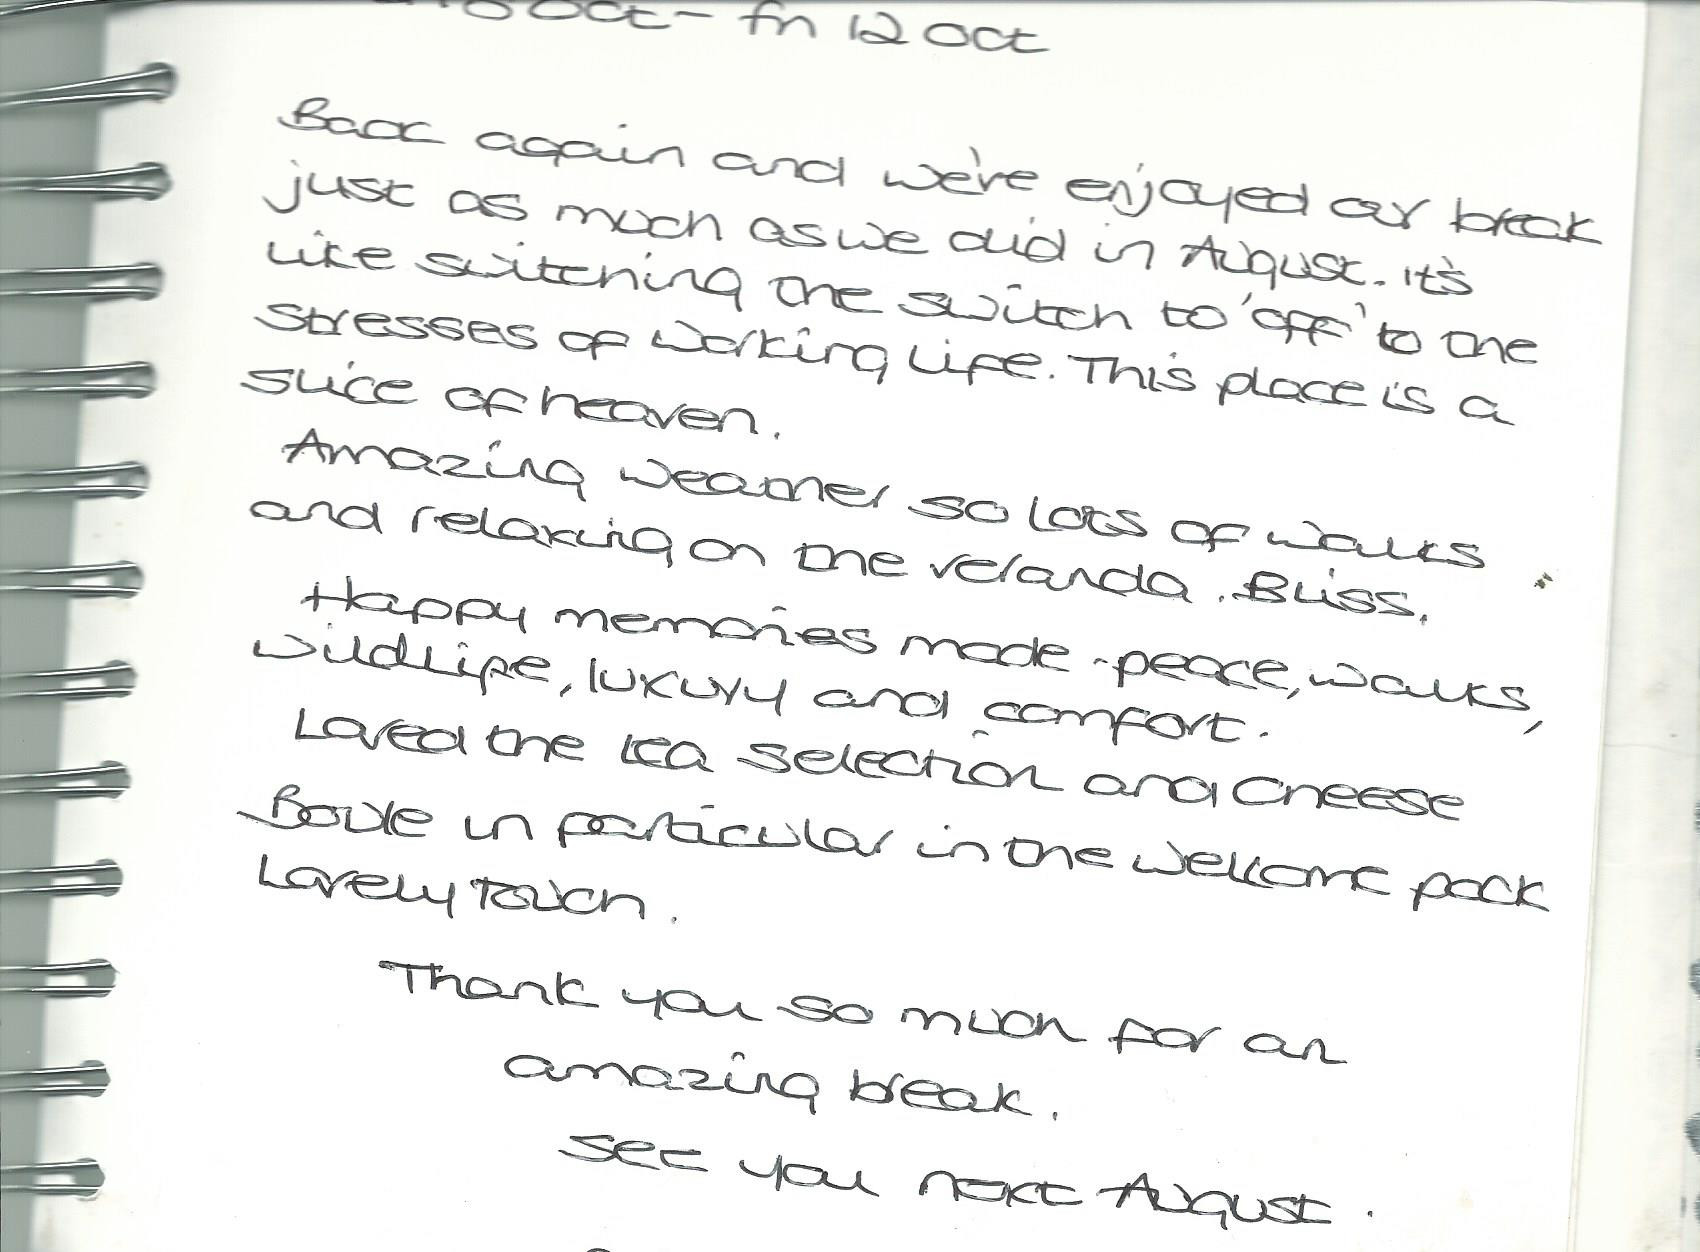 Oct - Fri 12 Oct
Back again and we've enjoyed our break
just as much as we did in August. It's
like switching the switch to 'off' to the
stresses of working life. This place is a
slice of heaven.
Amazing weather so lots of walks
and relaxing on the veranda. Bliss.
Happy memories made - peace, walks,
wildlife, luxury and comfort.
Loved the tea selection and cheese
Boule in particular in the welcome pack
Lovely touch.
Thank you so much for an
amazing break.
See you next August.